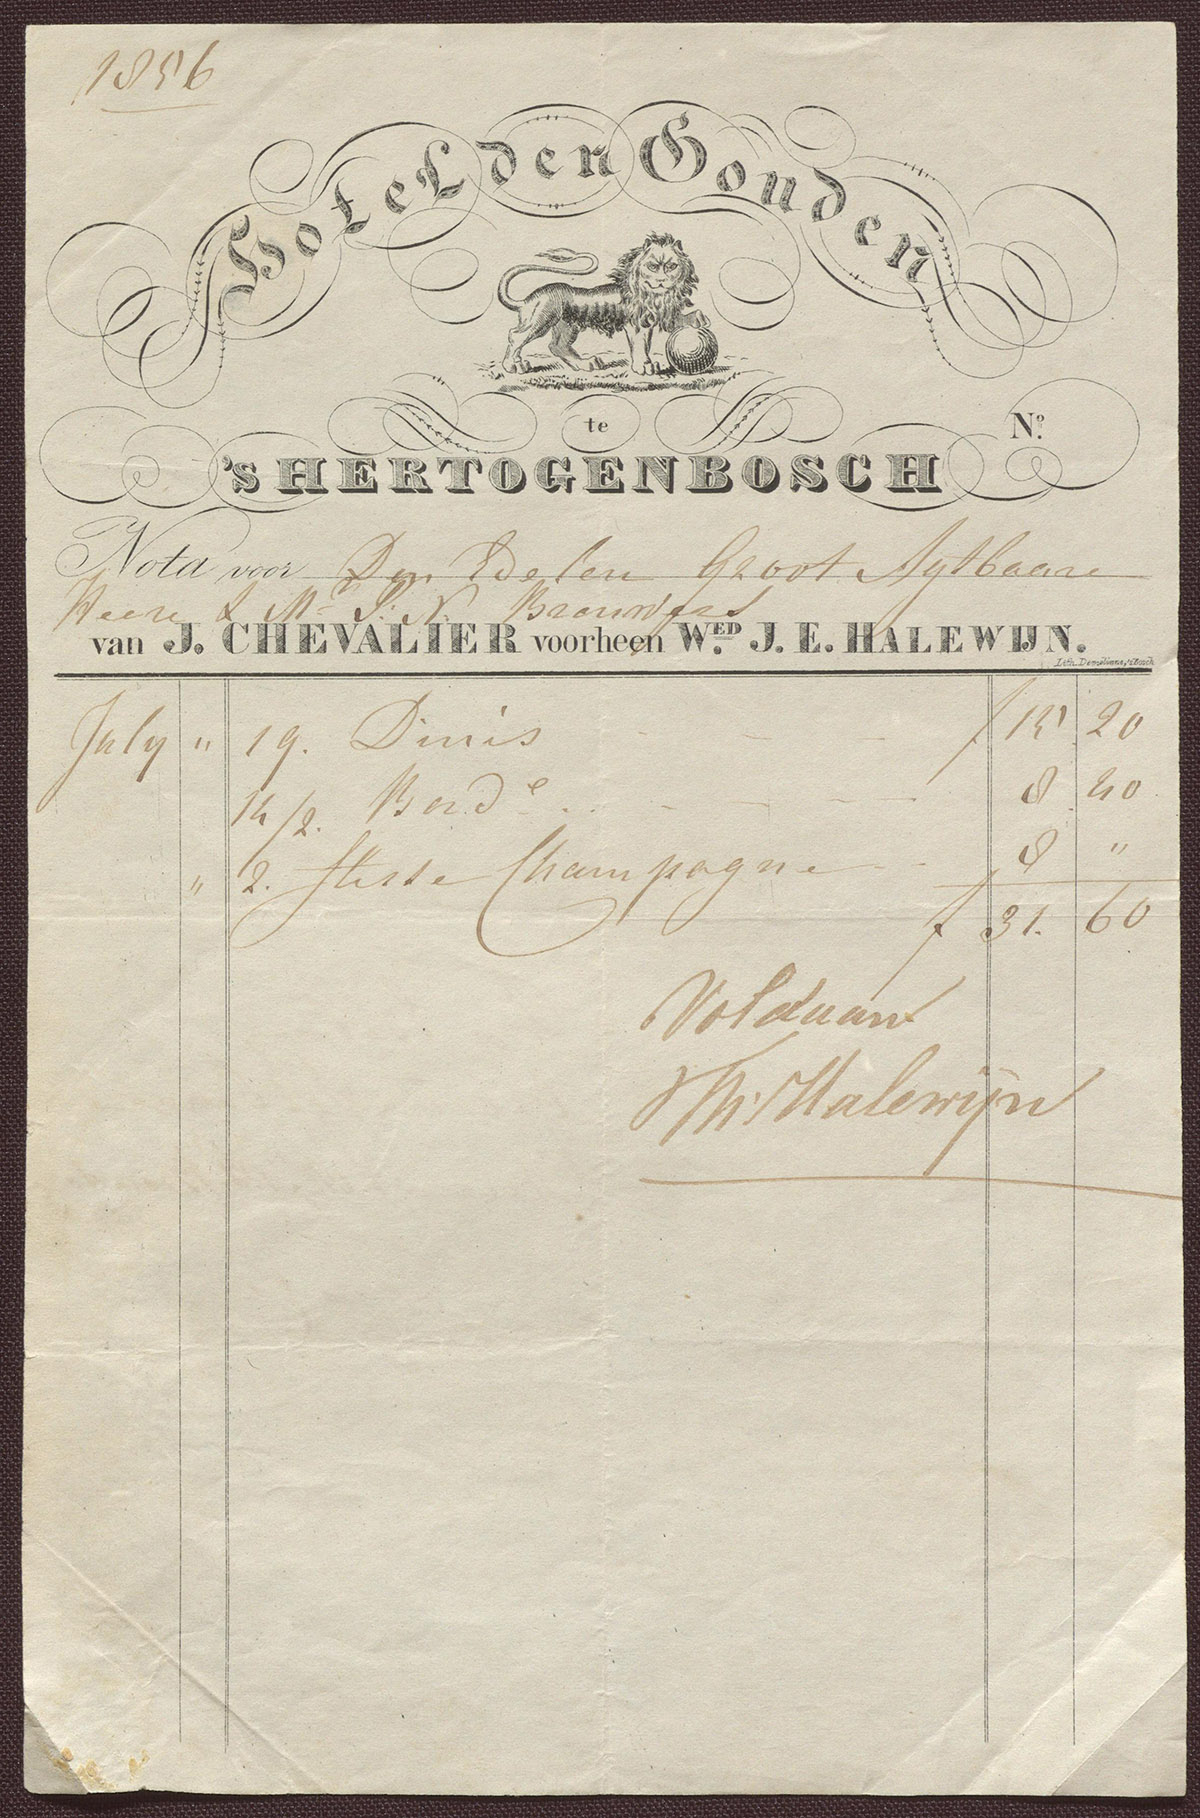 1856
Hotel den Gouden
te
No.
'sHERTOGENBOSCH
Nota voor Den Edelen Groot Agtbaare
Heere & Mr J: N. Brouwers
van J. CHEVALIER voorheen WED. J. E. HALEWIJN.
Lith. Demelinne, 'sBosch
July " 19. Dinis f 15 20
14/2. Bord e 8 40
" 2. flesse Champagne 8 "
f 31. 60
Voldaan
Halewijn